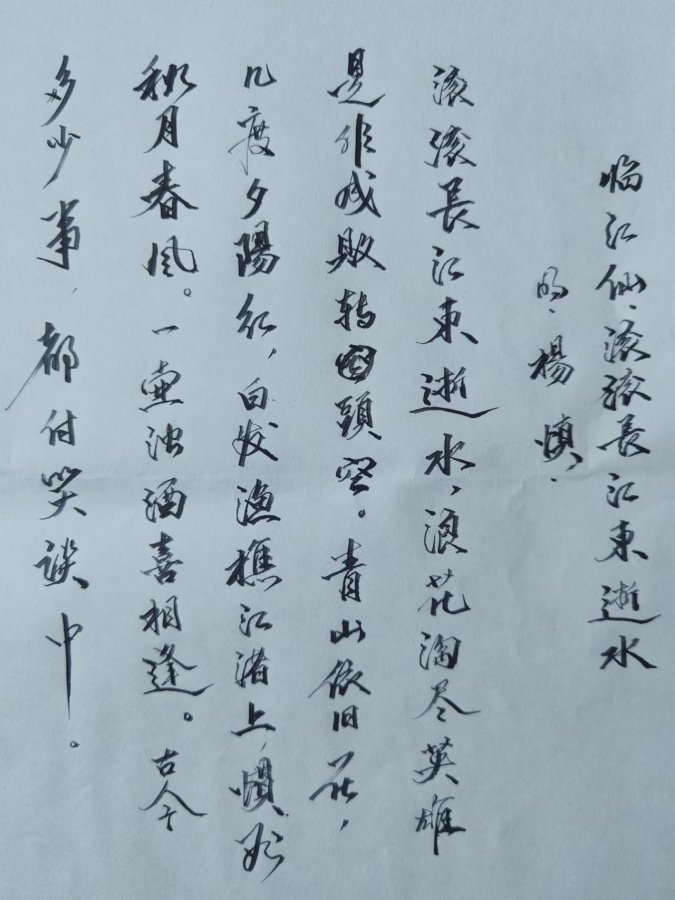 临江仙·滚滚長江東逝水
明·楊慎·
滚滚長江東逝水，浪花淘尽英雄
是非成敗转頭空。青山依旧在，
几度夕陽红，白发渔樵江渚上，惯看
秋月春风。一壶浊酒喜相逢。古今
多少事，都付笑谈中。